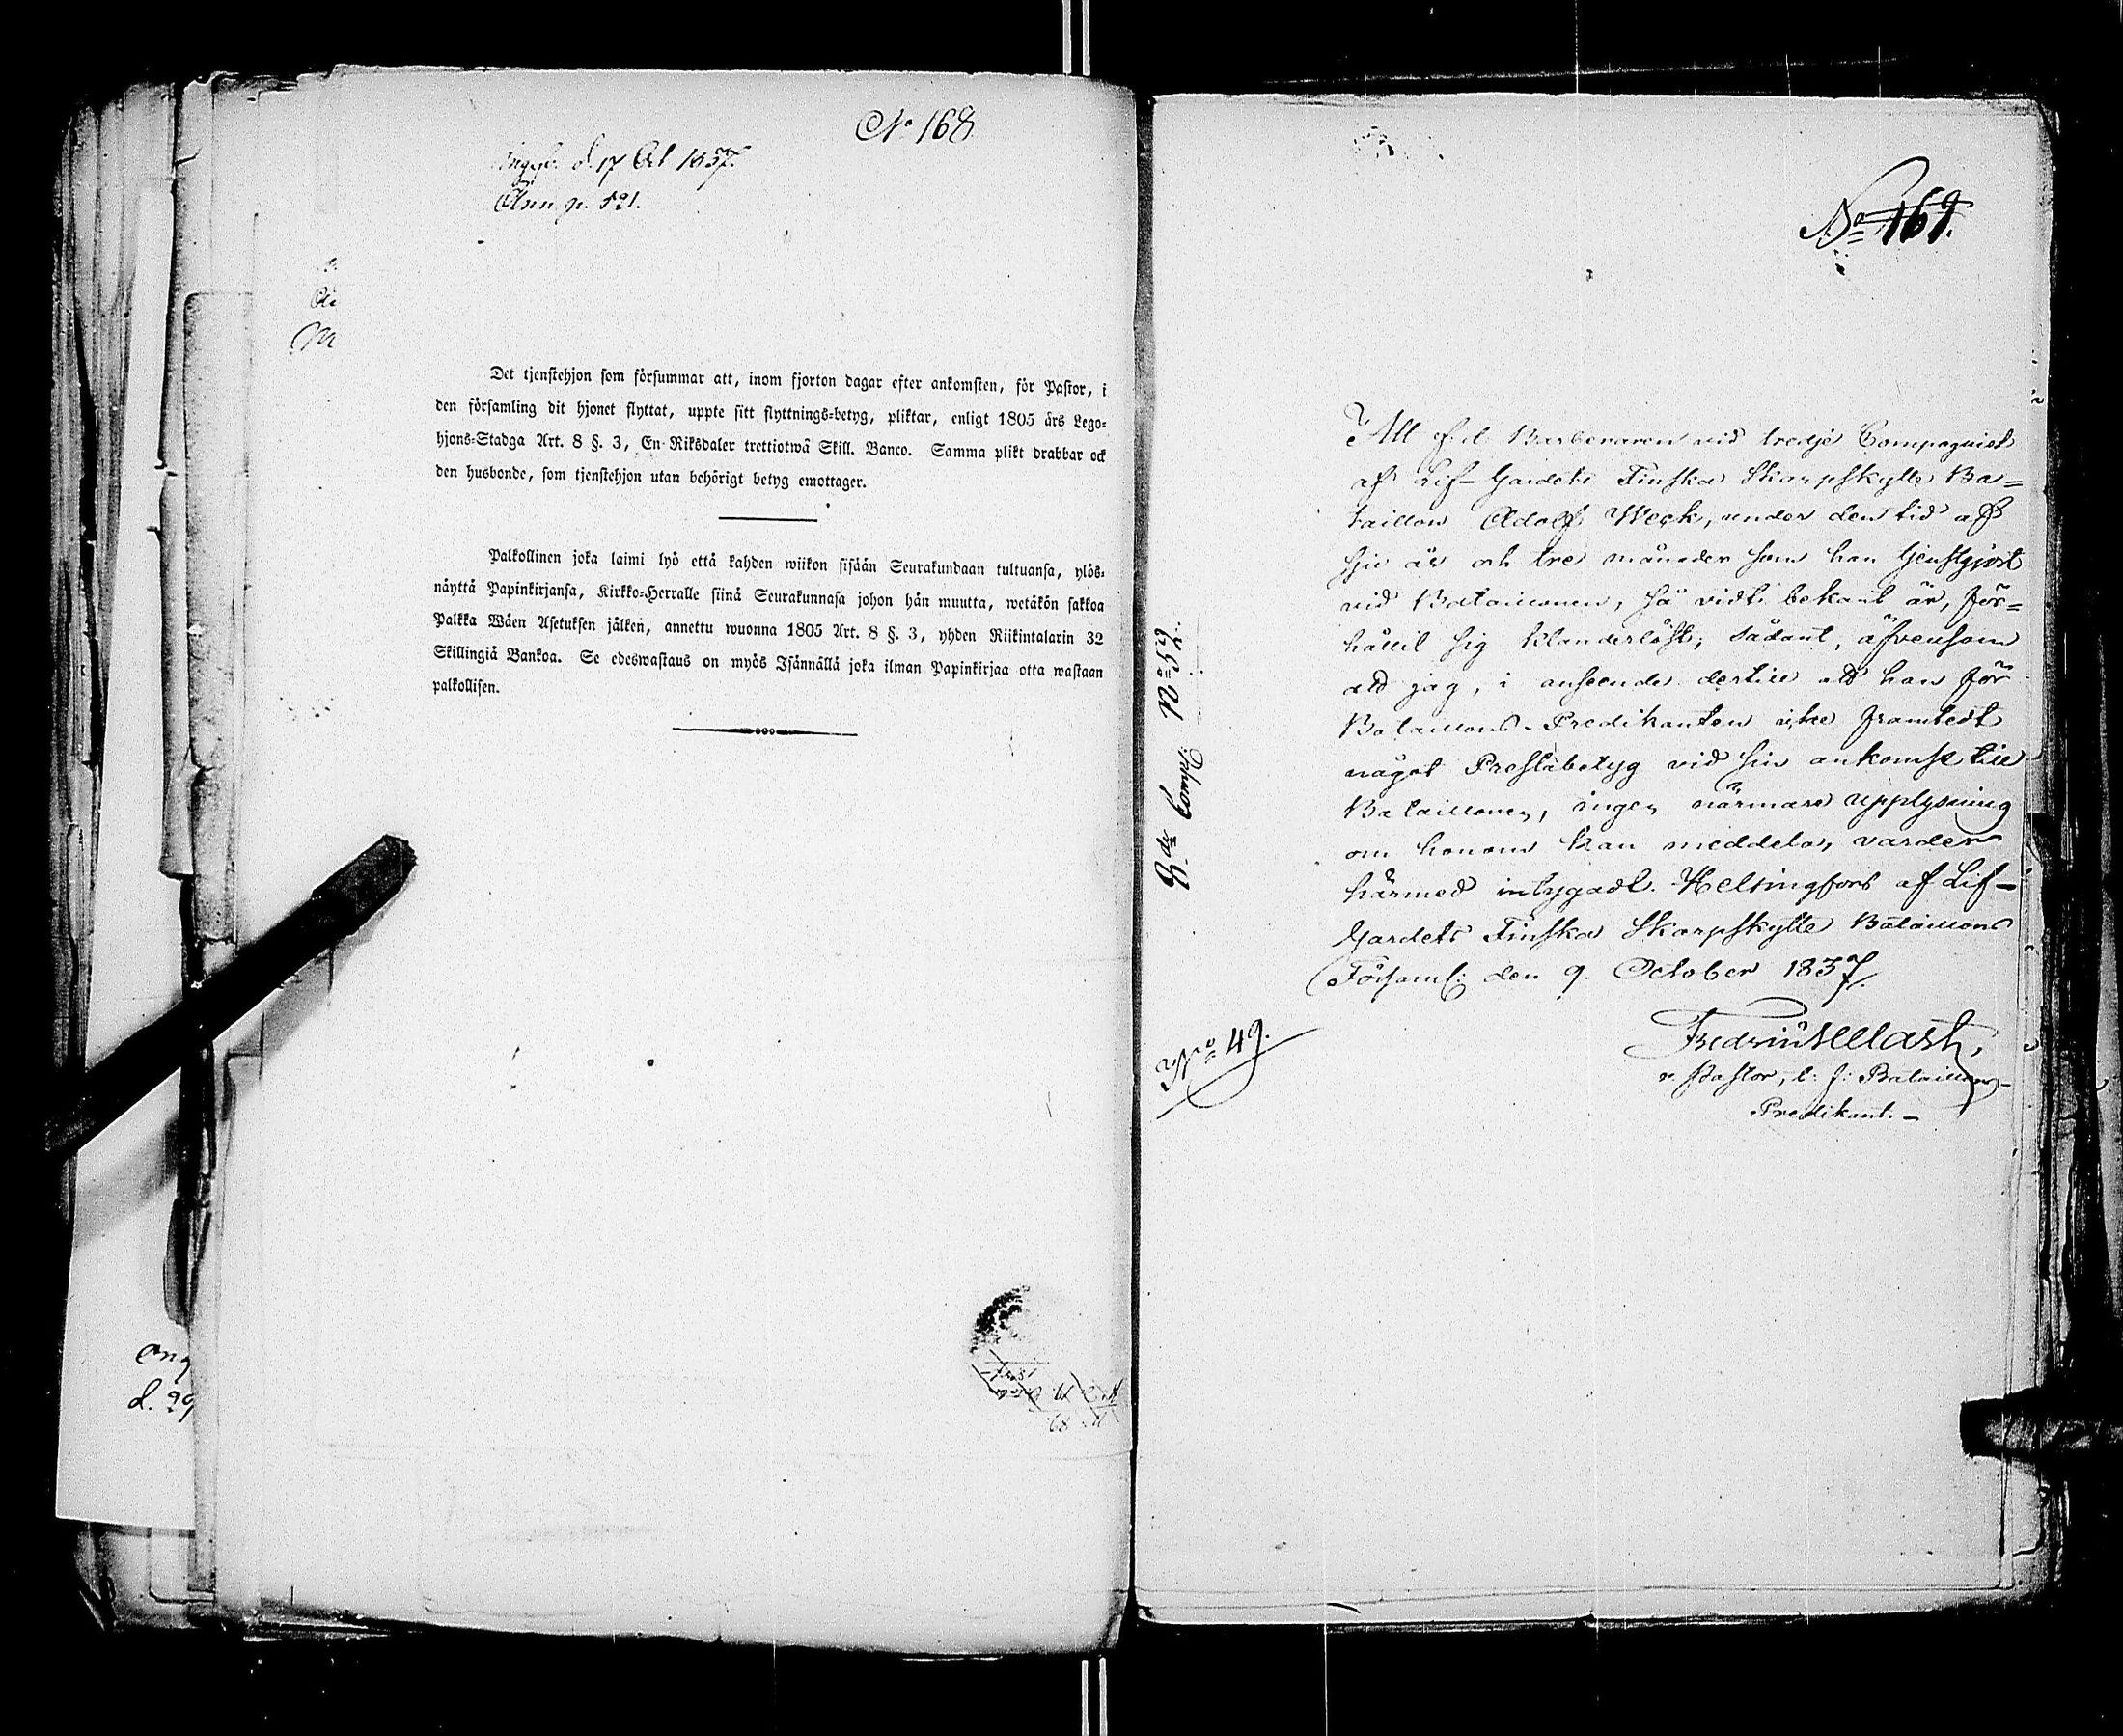 No 168
d. 17 Oct 1837.
Det tjenstehjon som försummar att, inom fjorton dagar efter ankomsten, för Pastor, i
den församling dit hjonet flyttat, uppte sitt flyttnings-betyg, pliktar, enligt 1805 års Lego-
hjons-Stadga Art. 8 §. 3, En Riksdaler trettiotwå Skill. Banco. Samma plikt drabbar ock
den husbonde, som tjenstehjon utan behörigt betyg emottager.
Palkollinen joka laimi lyö että kahden wiikon sisään Seurakundaan tultuansa, ylös-
näyttä Papinkirjansa, Kirkko-Herralle siinä Seurakunnasa johon hän muutta, wetäkön sakkoa
Palkka Wäen Asetuksen jälken, annettu wuonna 1805 Art. 8 §. 3, yhden Riikintalarin 32
Skillingiä Bankoa. Se edeswastaus on myös Isännällä joka ilman Papinkirjaa otta wastaan
palkollisen.
ang
d. 29
No 169.
Att f.d. Barberaren vid tredje Compagniet
af Lif-Gardets Finska Skarpskytte Ba=
taillon Adolf Weck, under den tid af
sju år och tre månader som han tjenstgjort
vid Bataillonen, så vidt bekant är, för=
hållit sig klanderlöst; sådant, äfvensom
att jag, i anseende dertill att han för
Bataillons-Predikanten icke framtedt
något Prestabetyg vid sin ankomst till
Bataillonen, ingen närmare upplysning
om honom kan meddela, varder
härmed intygadt. Helsingfors af Lif-
Gardets Finska Skarpskytte Bataillons
Församl: den 9. October 1837.
v. Pastor, t: f: Bataillons-
Predikant. -
No 49.
3de Comp: No 52.